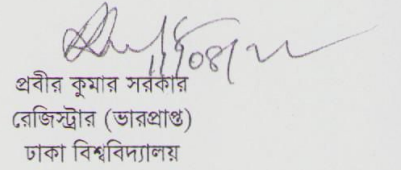 প্রবীর কুমার সরকার
রেজিস্ট্রার (ভারপ্রাপ্ত)
ঢাকা বিশ্ববিদ্যালয়